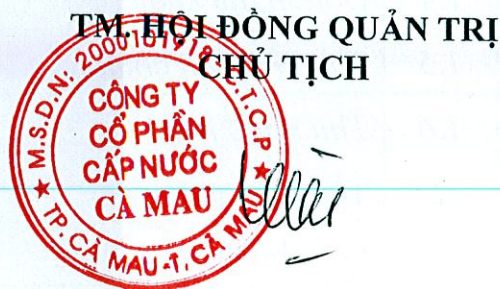 TM. HỘI ĐỒNG QUẢN TRỊ
CHỦ TỊCH
M.S.D.N: 2000101918 C.T.C.P
CÔNG TY
CỔ PHẦN
CẤP NƯỚC
CÀ MAU
TP. CÀ MAU -T. CÀ MAU